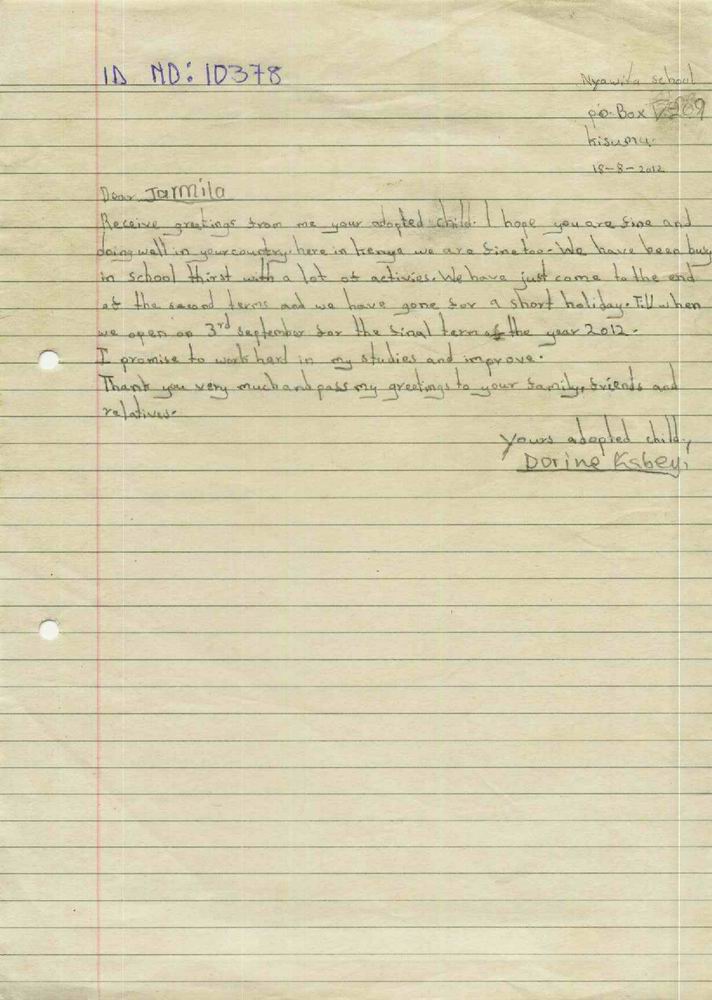 ID NO: 10378
Nyawita school
po. Box
kisumu.
18-8-2012
Dear Jarmila
Receive greetings from me your adopted child. I hope you are fine and
doing well in your country. here in kenya we are fine too. We have been busy
in school thirst with a lot of activies. We have just come to the end
of the second terms and we have gone for a short holiday. Till when
we open on 3rd september for the final term of the year 2012.
I promise to work hard in my studies and improve.
Thank you very much and pass my greetings to your family, friends and
relatives.
Yours adopted child,
Dorine